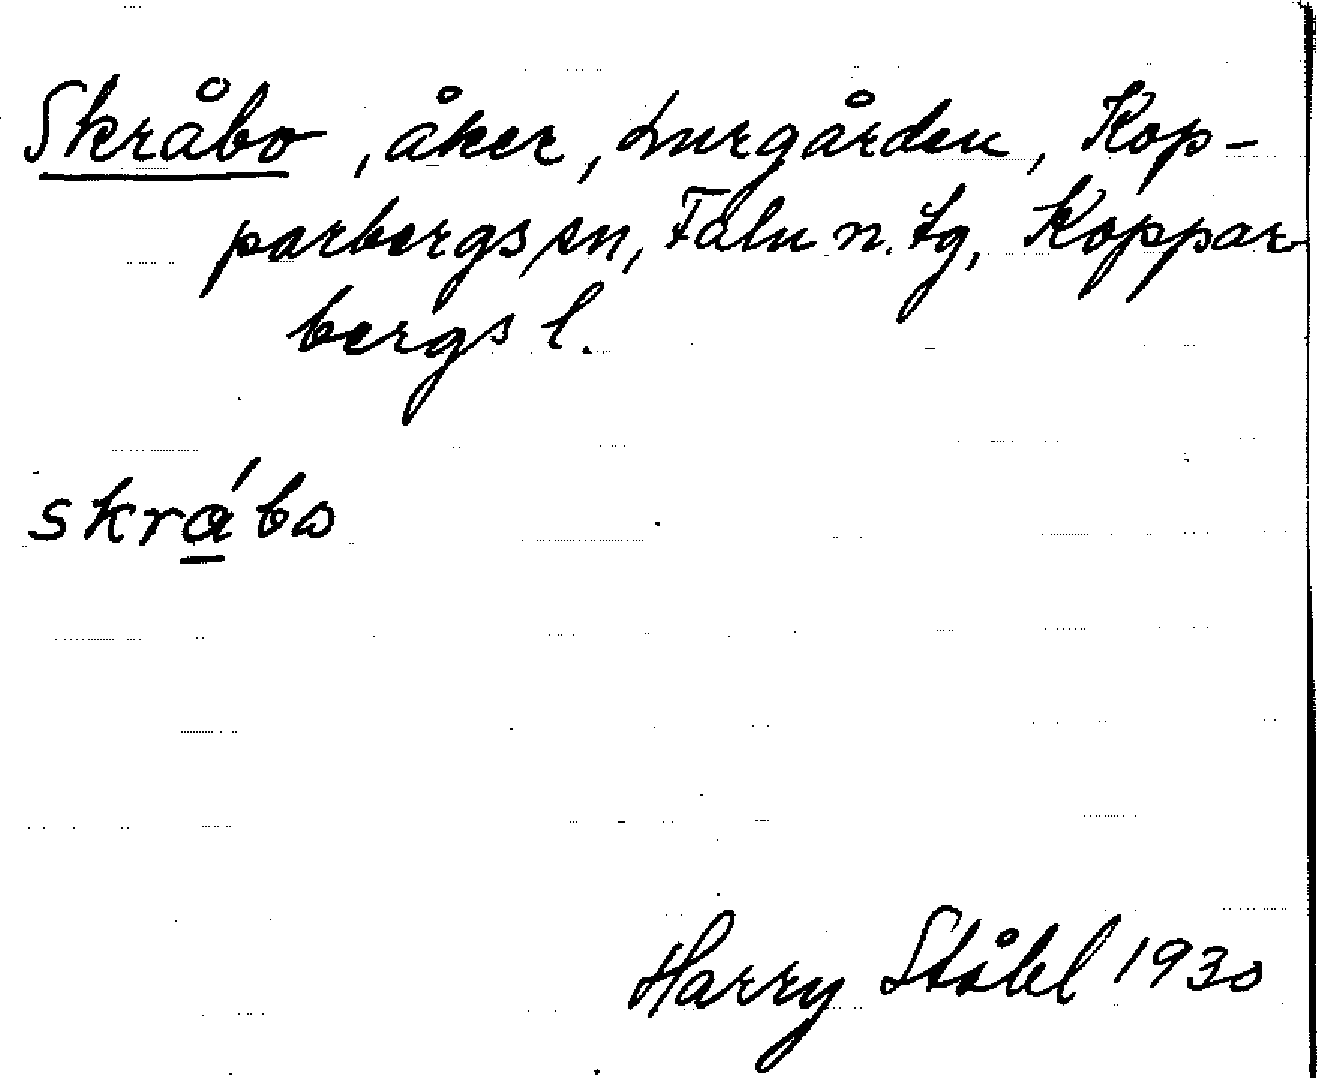 Skråbo, åker, Lurgården, Kop-
parbergs sn, Falu n. tg, Koppar
bergs l.
skrábo
Harry Ståhl 1930